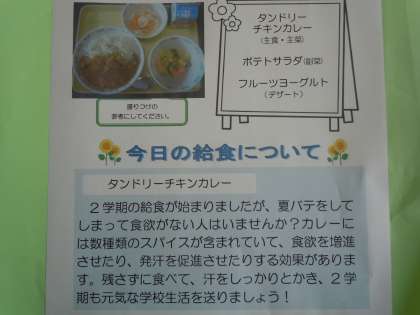 タンドリー
チキンカレー
(主食・主菜)
ポテトサラダ(副菜)
フルーツヨーグルト
(デザート)
盛りつけの
参考にしてください。
今日の給食について
タンドリーチキンカレー
2学期の給食が始まりましたが、夏バテをして
しまって食欲がない人はいませんか?カレーに
は数種類のスパイスが含まれていて、食欲を増進
させたり、発汗を促進させたりする効果がありま
す。残さずに食べて、汗をしっかりとかき、2学
期も元気な学校生活を送りましょう!